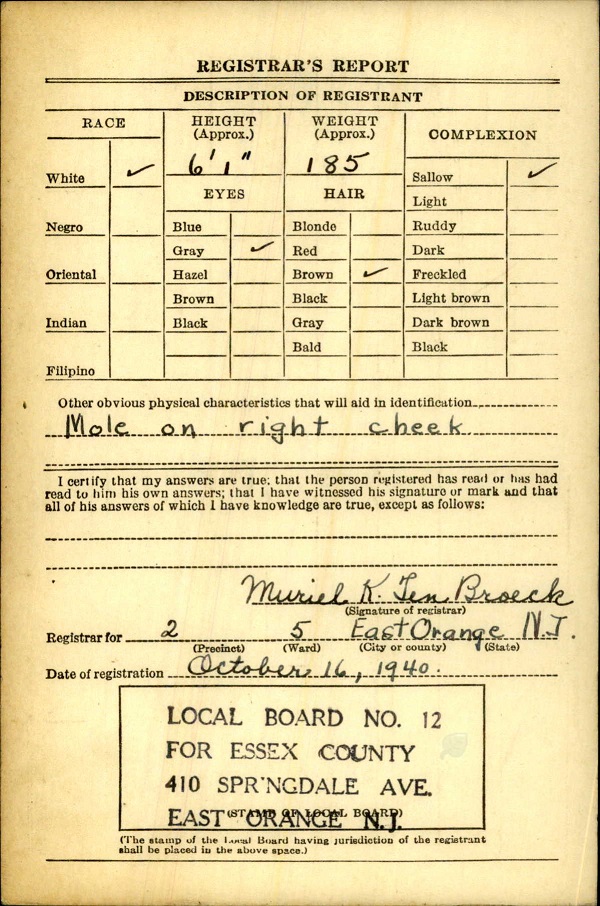 REGISTRAR'S REPORT
DESCRIPTION OF REGISTRANT
RACE HEIGHT (Approx.) WEIGHT (Approx.) COMPLEXION
6' 1" 185
White ✓ Sallow ✓
EYES HAIR
Light
Negro Blue Blonde Ruddy
Gray ✓ Red Dark
Oriental Hazel Brown ✓ Freckled
Brown Black Light brown
Indian Black Gray Dark brown
Bald Black
Filipino
Other obvious physical characteristics that will aid in identification
Mole on right cheek
I certify that my answers are true; that the person registered has read or has had
read to him his own answers; that I have witnessed his signature or mark and that
all of his answers of which I have knowledge are true, except as follows:
Muriel K. Ten Broeck
(Signature of registrar)
Registrar for 2 5 East Orange N.J.
(Precinct) (Ward) (City or county) (State)
Date of registration October 16, 1940.
LOCAL BOARD NO. 12
FOR ESSEX COUNTY
410 SPRINGDALE AVE.
(STAMP OF LOCAL BOARD)
EAST ORANGE N.J.
(The stamp of the Local Board having jurisdiction of the registrant
shall be placed in the above space.)